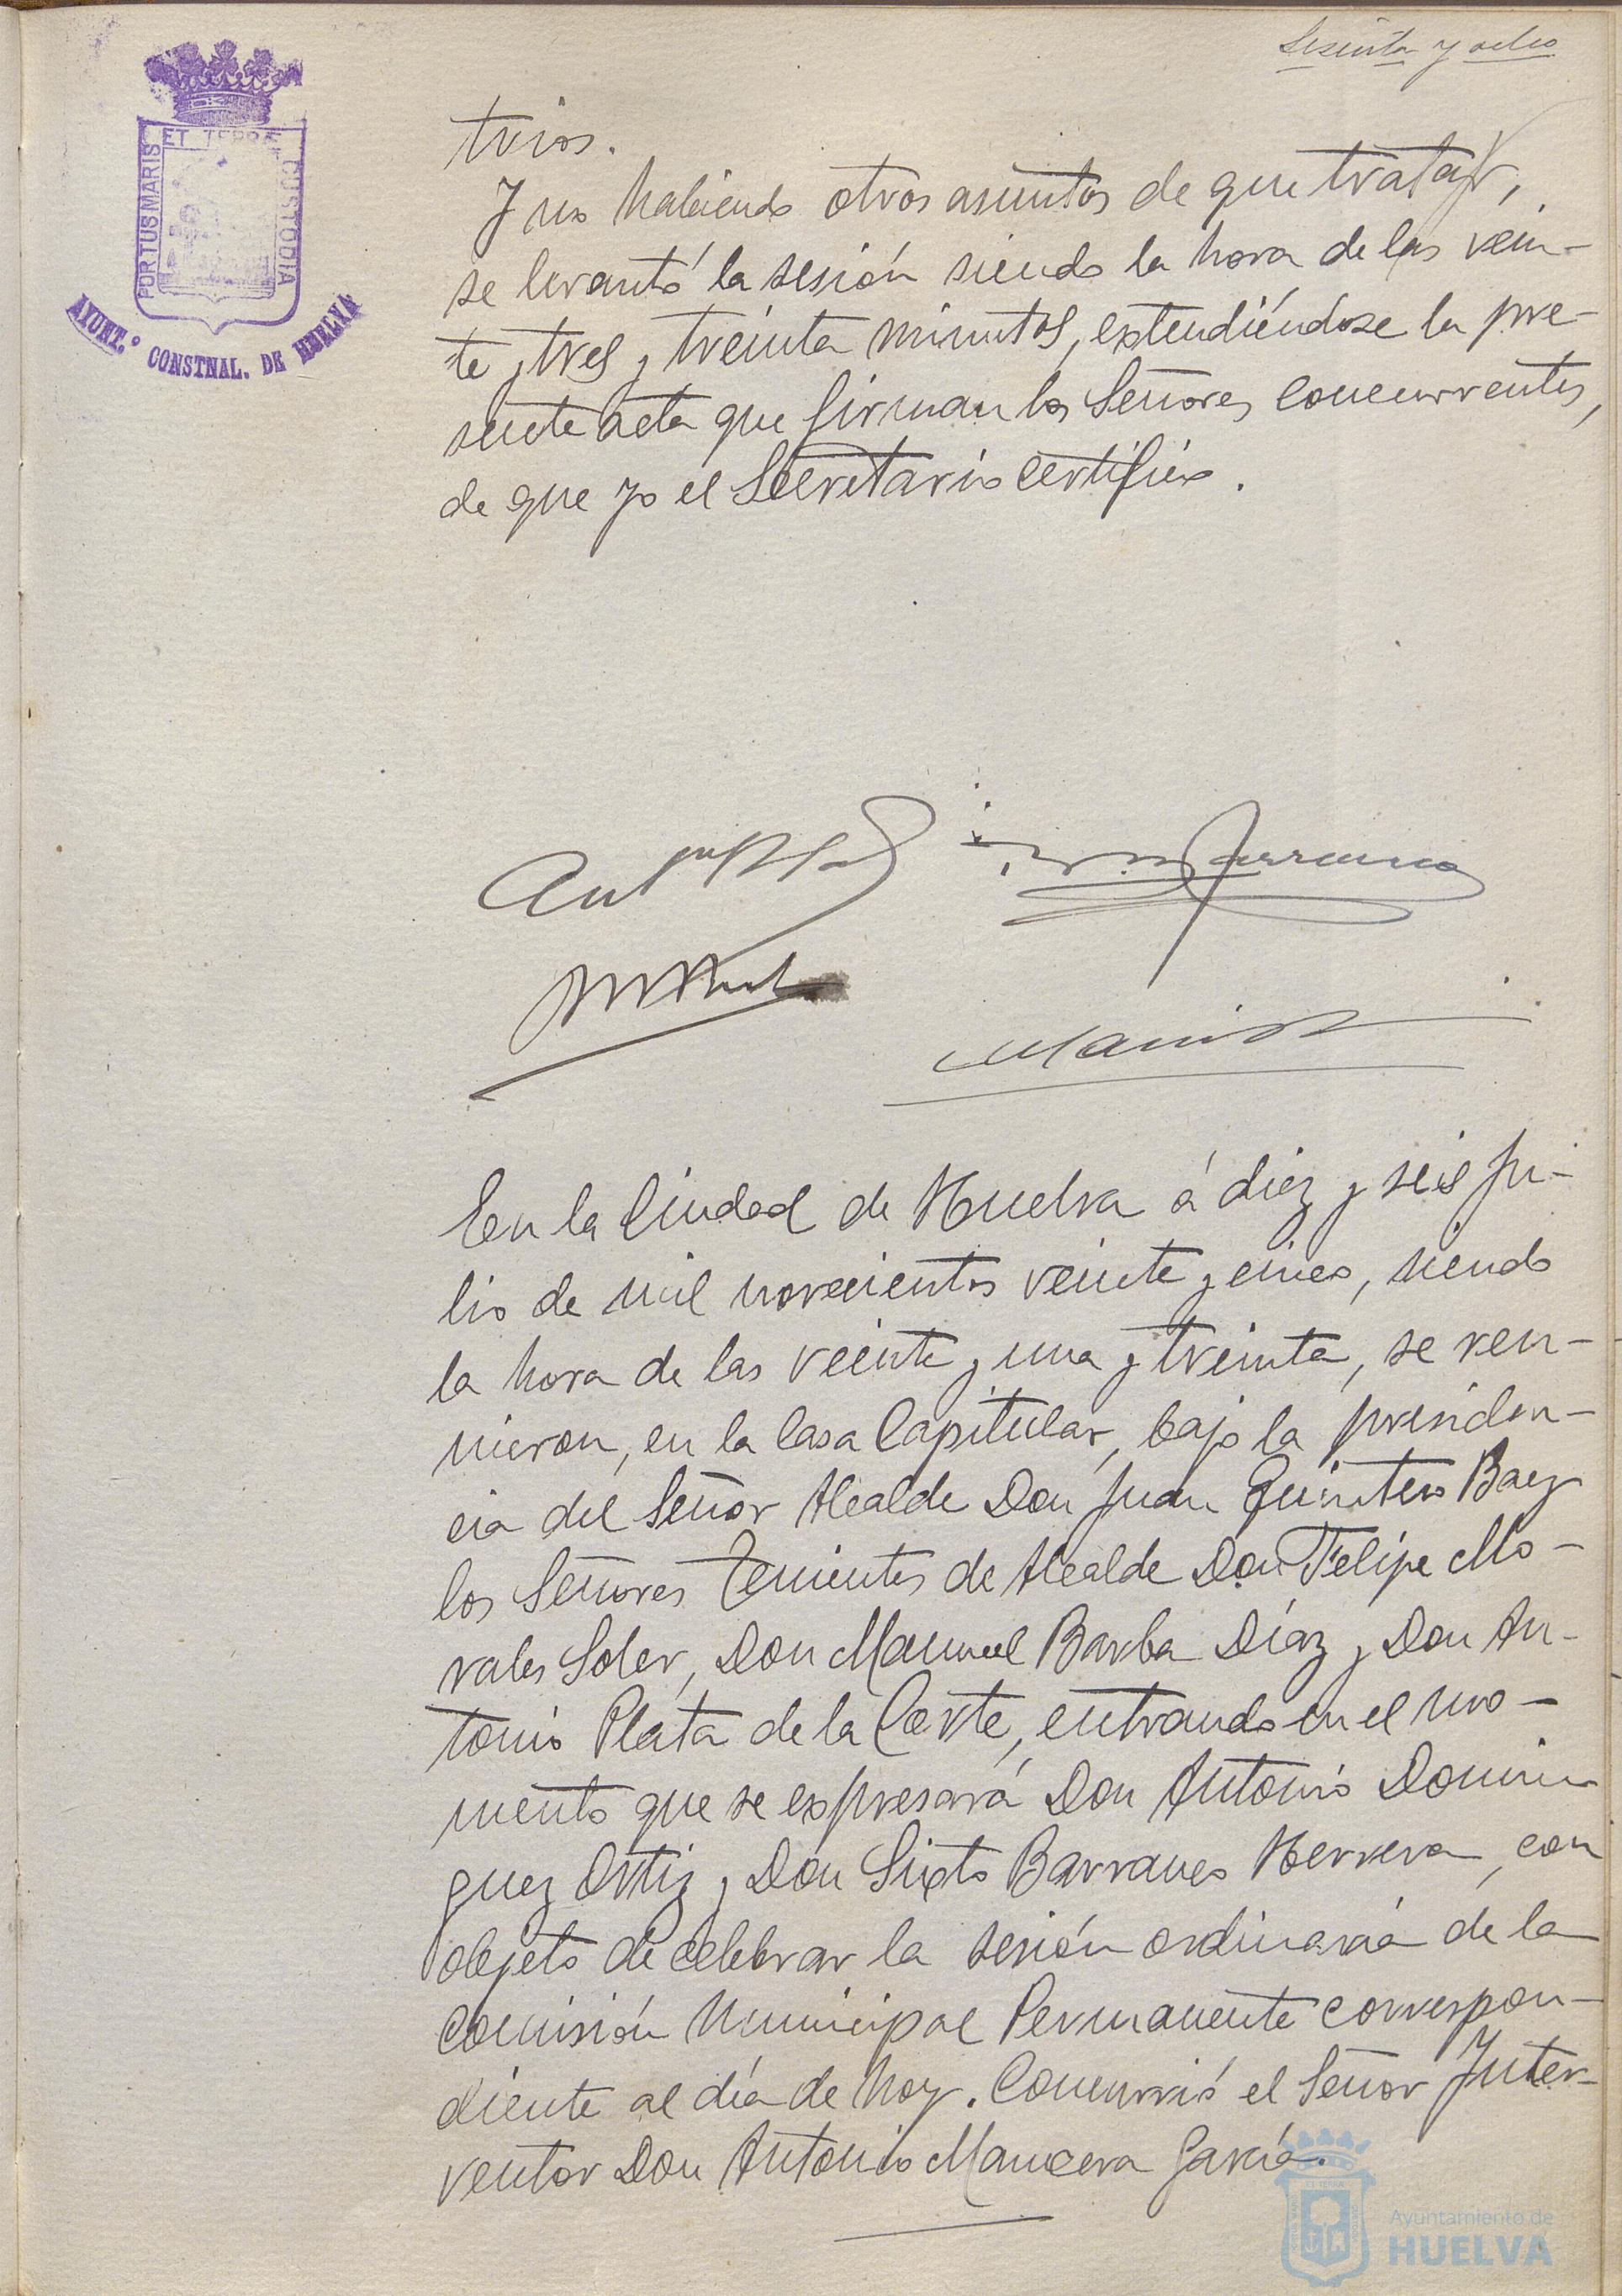 Sesenta y ocho
PORTUS MARIS ET TERRÆ CUSTODIA
AYUNT.º CONSTNAL. DE HUELVA
trios.
Y no habiendo otros asuntos de que tratar,
se levantó la sesión siendo la hora de las vein-
te y tres y treinta minutos, extendiéndose la pre-
sente acta que firman los Señores concurrentes,
de que yo el Secretario certifico.
En la Ciudad de Huelva á diez y seis Ju-
lio de mil novecientos veinte y cinco, siendo
la hora de las veinte y una y treinta, se reu-
nieron, en la Casa Capitular, bajo la presiden-
cia del Señor Alcalde Don Juan Quintero Baez
los Señores Tenientes de Alcalde Don Felipe Mo-
rales Soler, Don Manuel Barba Díaz y Don An-
tonio Plata de la Corte, entrando en el mo-
mento que se expresará Don Antonio Domin
guez Ortiz y Don Sixto Barranco Herrera, con
objeto de celebrar la sesión ordinaria de la
Comisión Municipal Permanente correspon-
diente al día de hoy. Concurrió el Señor Inter-
ventor Don Antonio Mancera García.
Ayuntamiento de
HUELVA